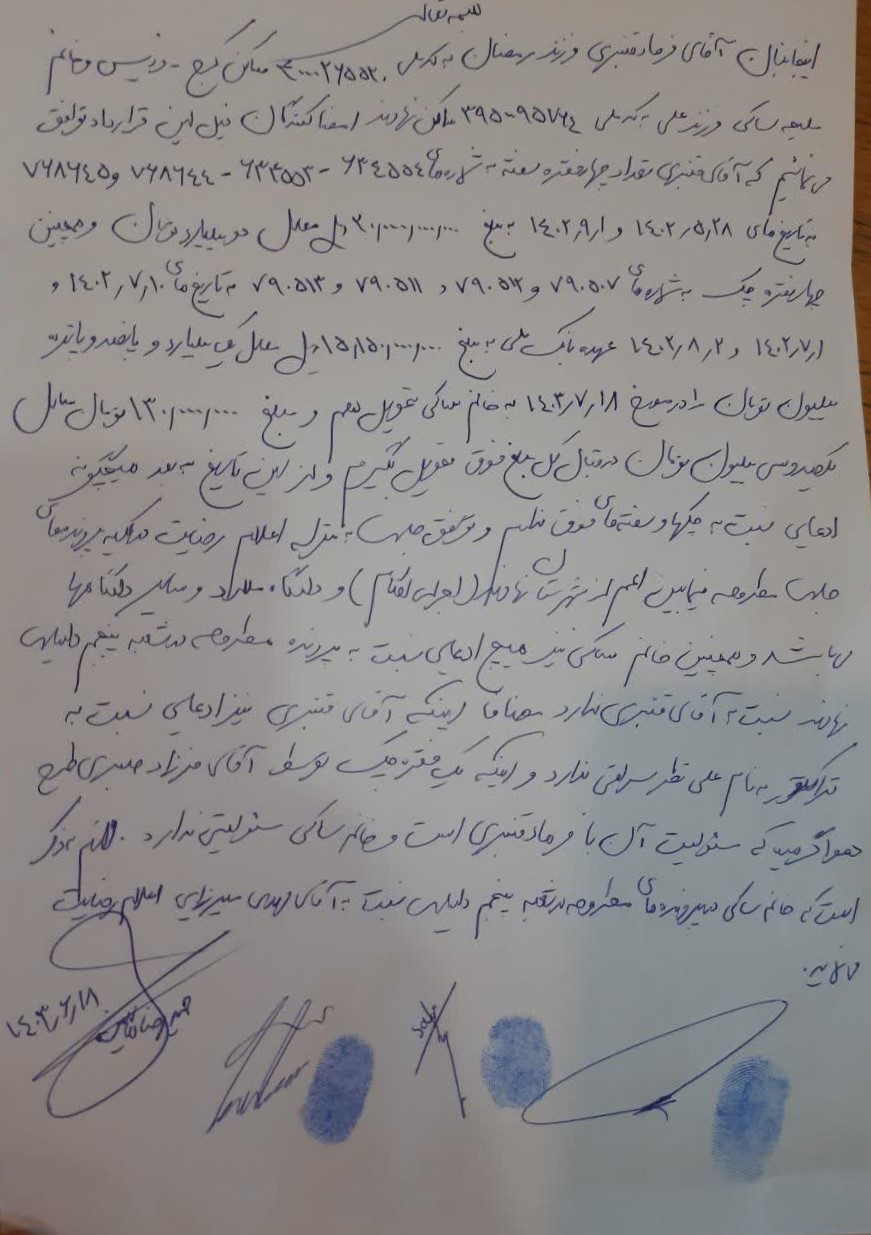 بسمه تعالی
اینجانبان آقای فرهاد قنبری فرزند رمضان به کد ملی ساکن کرج - وخانم
ملیحه ساکی فرزند علی به کد ملی ۳۹۵۰۰۹۵۷۶۴ ساکن نهاوند امضا کنندگان ذیل این قرارداد توافق
می نمائیم که آقای قنبری تعداد چهار فقره سفته به شماره های ۶۳۴۵۵۴ - ۶۳۳۵۵۳ - ۷۶۸۶۴۴ و ۷۶۸۶۴۵
به تاریخ های ۱۴۰۲٫۵٫۲۸ و ۱۴۰۲٫۹٫۱ به مبلغ ریال معادل دو میلیارد تومان و همچنین
چهار فقره چک به شماره های ۷۹۰۵۰۷ و ۷۹۰۵۱۲ و ۷۹۰۵۱۱ و ۷۹۰۵۱۳ به تاریخ های ۱۴۰۲٫۷٫۱۰ و
۱۴۰۲٫۷٫۱ و ۱۴۰۲٫۸٫۲ عهده بانک ملی به مبلغ ریال معادل یک میلیارد و پانصد و پانزده
میلیون تومان را در مورخ ۱۴۰۳٫۷٫۱۸ به خانم ساکی تحویل دهم و مبلغ ۱۳۰٫۰۰۰٫۰۰۰ تومان معادل
یکصد و سی میلیون تومان در قبال کل مبلغ فوق تحویل بگیرم و از این تاریخ به بعد هیچگونه
ادعایی نسبت به چکها و سفته های فوق ندارم و توافق حاضر به منزله اعلام رضایت در کلیه پرونده های
مطروحه فیمابین اعم از شهرستان نهاوند (اجرای احکام) و دادگاه و سایر دادگاهها
می باشد و همچنین خانم ساکی نیز هیچ ادعایی نسبت به پرونده مطروحه در شعبه پنجم دادیاری
نهاوند نسبت به آقای قنبری ندارد مضافا اینکه آقای قنبری نیز ادعایی نسبت به
تراکتور به نام علی نظر سرلقی ندارد و اینکه یک فقره چک توسط آقای فرزاد صبری طرح
دعوا گردید که مسئولیت آن با فرهاد قنبری است و خانم ساکی مسئولیتی ندارد. لازم به ذکر
است که خانم ساکی در پرونده های مطروحه در شعبه پنجم دادیاری نسبت به آقای مهدی میرزایی اعلام رضایت
می نماید.
۱۴۰۳٫۶٫۱۸